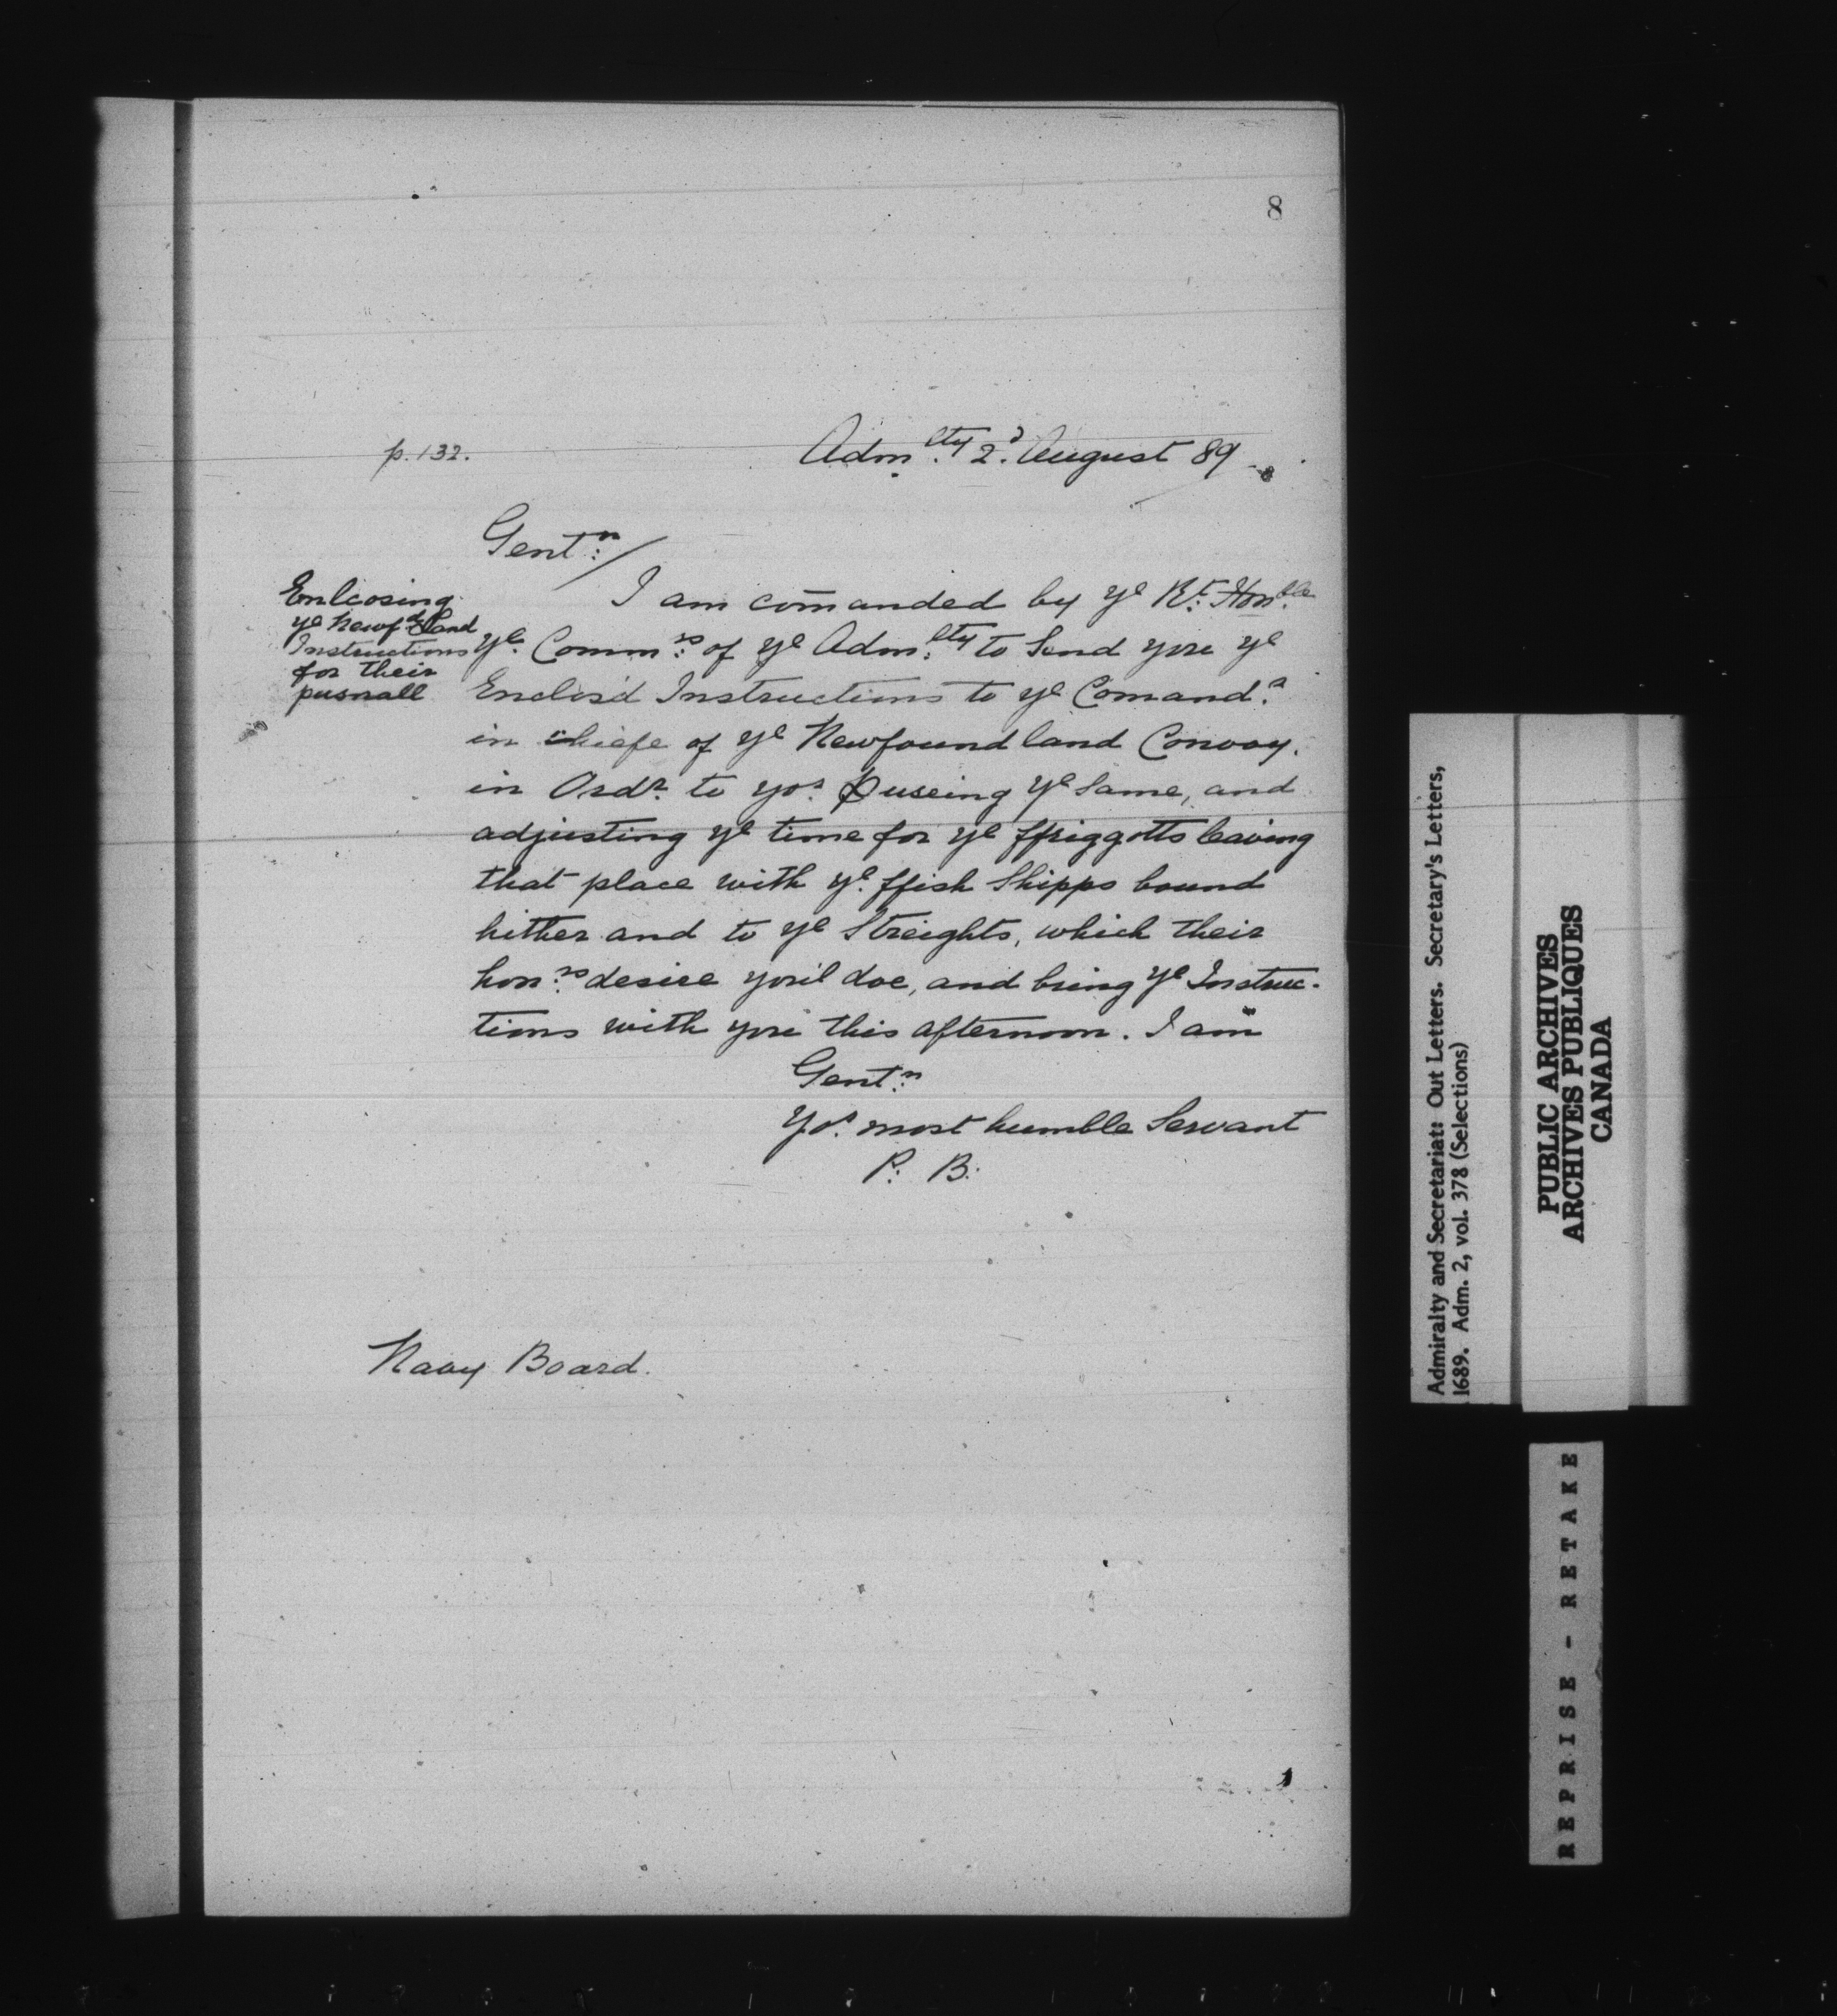 8
p. 132.
Adm.lty 2.d August 89
Gent.n/
Enlcosing
ye Newfdland
Instructions
for their
pusnall
I am com̄anded by ye Rt. Honble.
ye Comm.rs of ye Adm.lty to Send you ye
Enclos'd Instructions to ye Comand.r
in chiefe of ye Newfoundland Convoy.
in Ordr. to yor. puseing ye Same, and
adjusting ye time for ye ffriggotts leaving
that place with ye. ffish Shipps bound
hither and to ye Streights, which their
hon.rs desire you'l doe, and bring ye Instruc-
tions with you this afternoon. I am
Gent.n
Yor. most humble Servant
P: B:
Navy Board.
Admiralty and Secretariat: Out Letters. Secretary's Letters,
1689. Adm. 2, vol. 378 (Selections)
PUBLIC ARCHIVES
ARCHIVES PUBLIQUES
CANADA
REPRISE - RETAKE